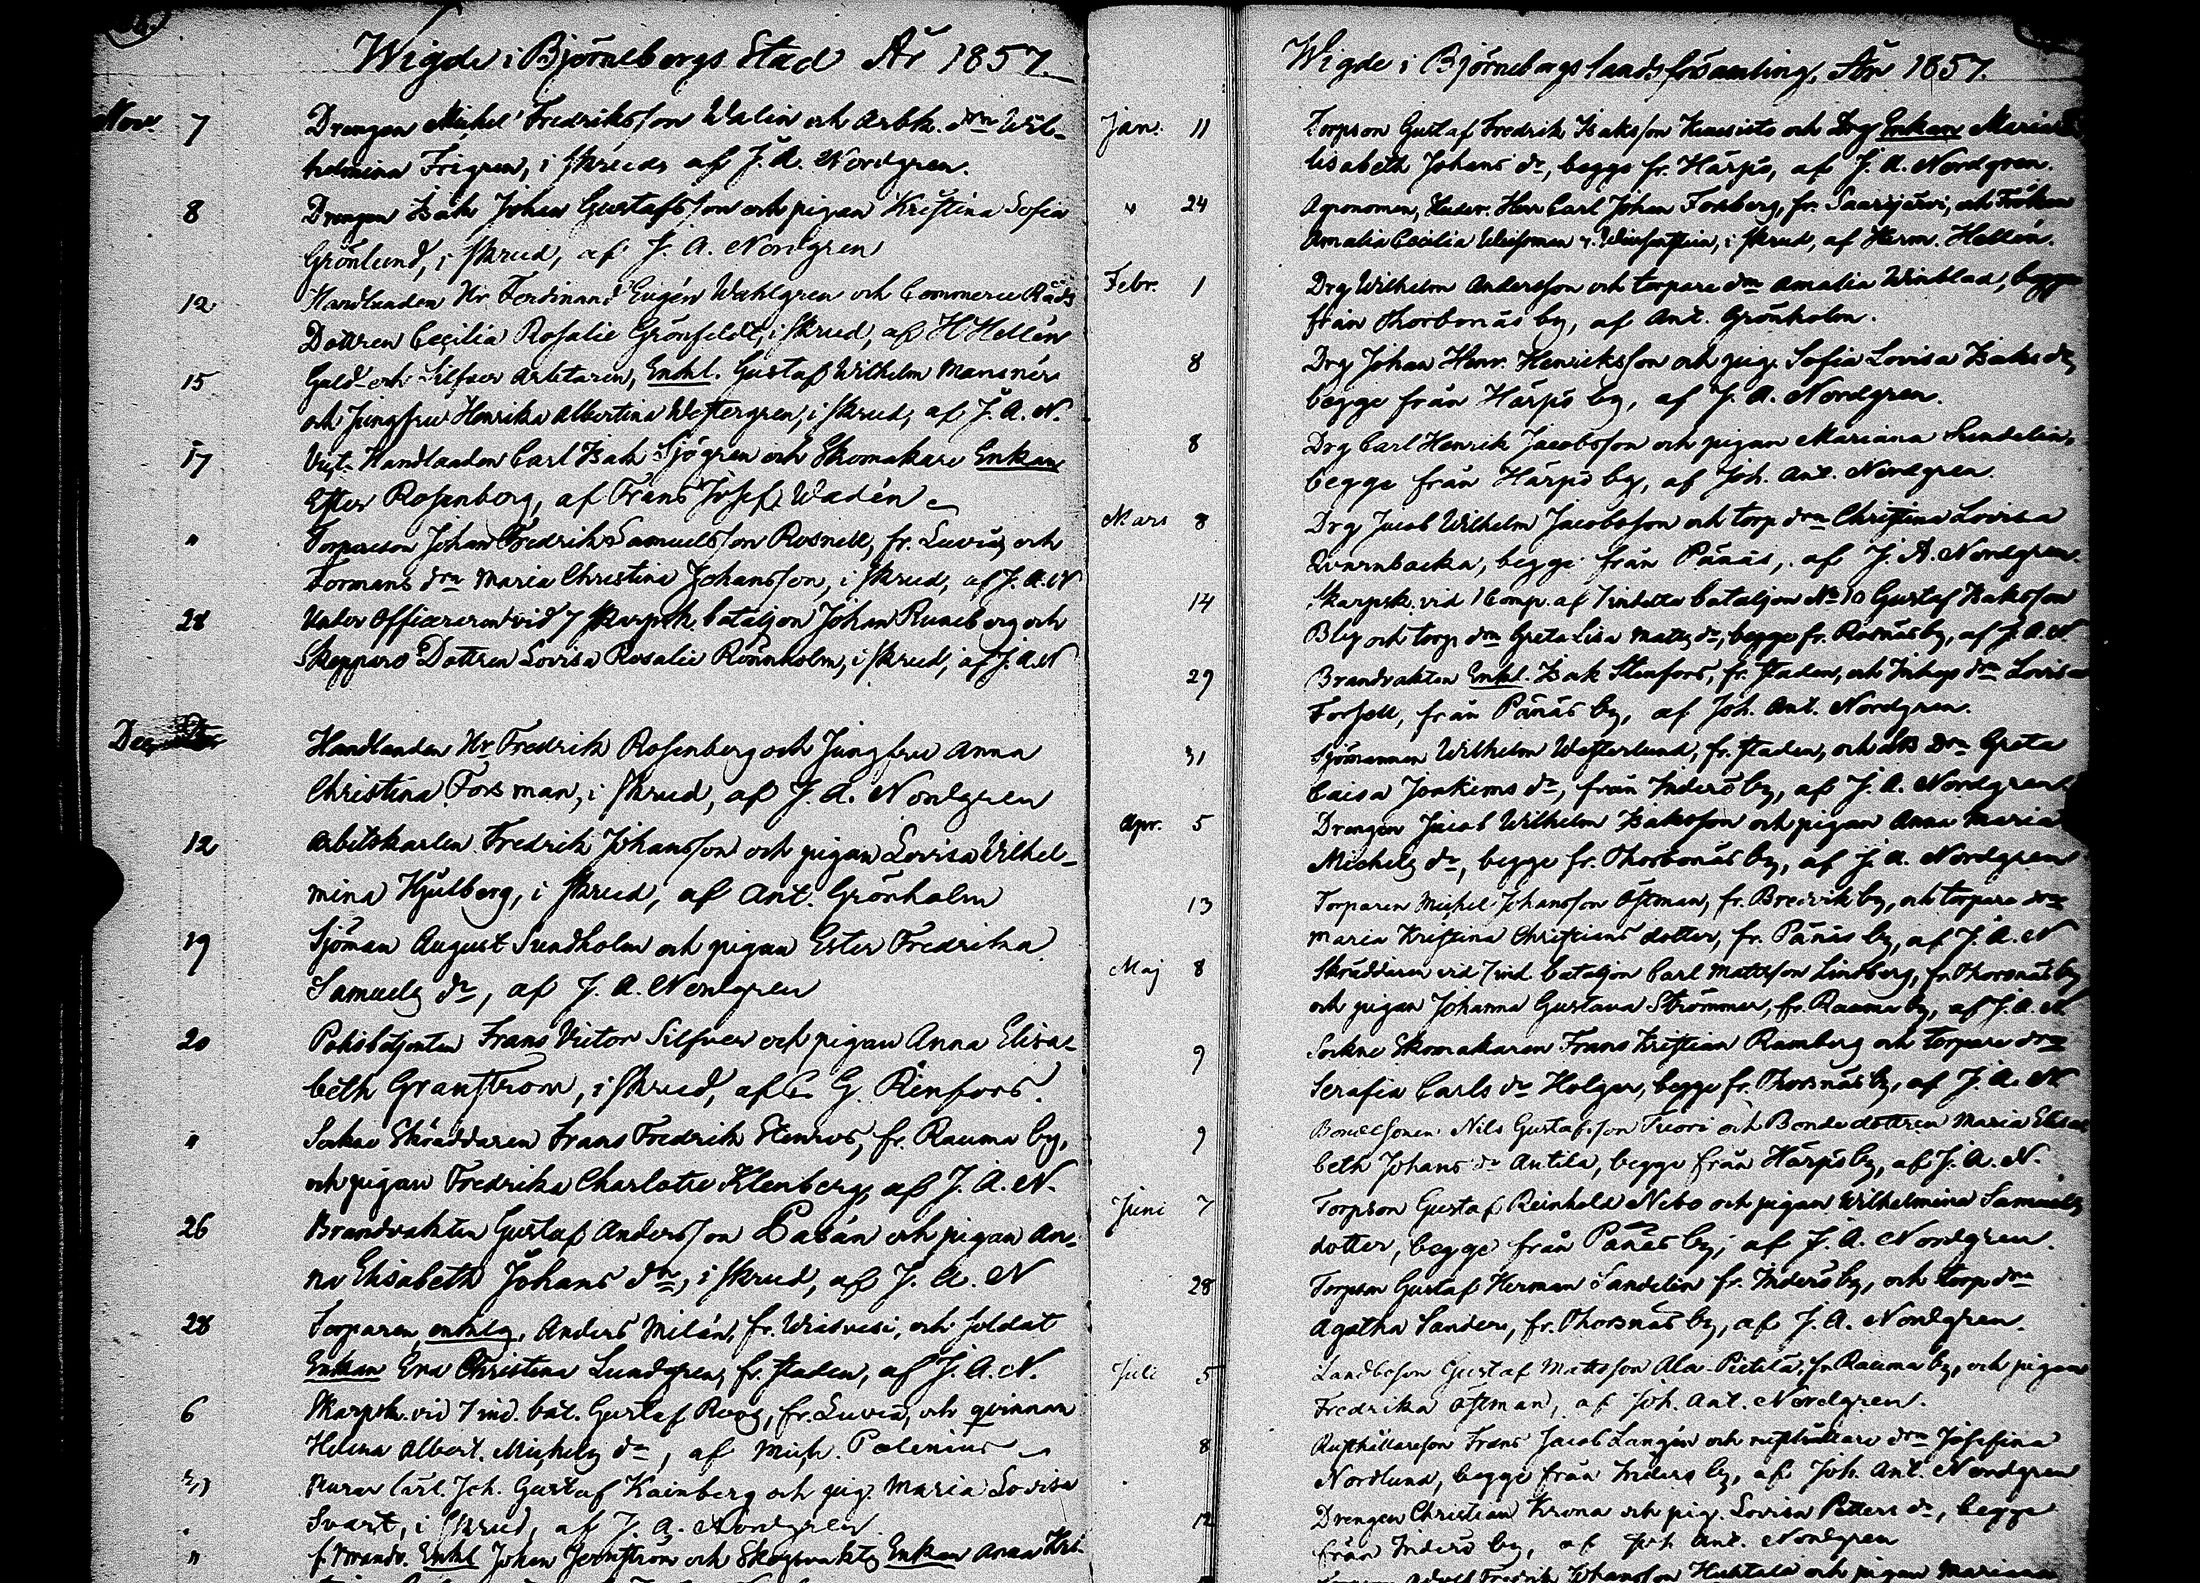 Wigde i Björneborgs Stad År 1857.
Nov. 7 Drengen Michel Fredriksson Walin och Arbk. drn Wil-
helmina Frigren, i skrud, af J. A. Nordgren.
8 Drengen Isak Johan Gustafsson och pigan Kristina Sofia
Grönlund, i skrud, af J. A. Nordgren
12 Handlanden Hr Ferdinand Eugén Wahlgren och Commerce Råds
Dottren Cecilia Rosalie Grönfeldt, i skrud, af H Hellén
15 Guld och Silfver Arbetaren, Enkl. Gustaf Wilhelm Mansnér
och Jungfru Henrika Albertina Westergren, i skrud, af J. A. N.
17 Vict. Handlanden Carl Isak Sjögren och Skomakare Enkan
Efter Rosenberg, af Frans Josef Wadén
" Torpareson Johan Fredrik Samuelsson Rosnell, fr. Luvia, och
Formans drn Maria Christina Johansson, i skrud, af J. A. N
28 Under Officeraren vid 7 skarpsk. bataljon Johan Runeberg och
Skeppars Dottren Lovisa Rosalie Rönnholm, i skrud, af J. A. N
December
Handlanden Hr Fredrik Rosenberg och Jungfru Anna
Christina Forsman, i skrud, af J. A. Nordgren
12 Arbetskarlen Fredrik Johansson och pigan Lovisa Wilhel-
mina Kjulberg, i skrud, af Ant. Grönholm
19 Sjöman August Sundholm och pigan Ester Fredrika
Samuels dr, af J. A. Nordgren
20 Polisbetjenten Frans Victor Silfver och pigan Anna Elisa-
beth Granström, i skrud, af C. G. Renfors.
" Sockne Skräddaren Frans Fredrik Stenros, fr. Rauma by,
och pigan Fredrika Charlotte Klenberg, af J. A. N.
26 Brandvakten Gustaf Andersson Pasán och pigan An-
na Elisabeth Johans dr, i skrud, af J. A. N
28 Torparen, enklg, Anders Milán, fr. Wiasvesi, och soldat
Enkan Eva Christina Lundgren, fr. staden, af J. A. N.
6 Skarpsk. vid 7 ind. bat. Gustaf Roos, fr. Luvia, och qvinnan
Helena Albert. Michels dr, af Mich. Polenius
Murar Carl Joh. Gustaf Kainberg och pig. Maria Lovisa
Svart, i skrud, af J. A. Nordgren
" f. Brandv. Enkl Johan Jernström och Skogvakts Enkan Anna Kri-
Wigde i Björneborgs landsförsamling, År 1857.
Jan. 11 Torpson Gustaf Fredrik Isaksson Kuusisto och Drg Enkan Maria E
lisabeth Johans dr, begge fr. Härpö, af J. A. Nordgren.
" 24 Agronomen, Studer. Herr Carl Johan Forsberg, fr. Saarijärvi, och Fröken
Amalia Cecilia, i skrud, af Herm. Hellén.
Febr. 1 Drg Wilhelm Andersson och torpare drn Amalia Winblad, begge
från Thorbonäs by, af Ant. Grönholm.
8 Drg Johan Henr. Henriksson och pig. Sofia Lovisa Isaks dr,
begge från Härpö by, af J. A. Nordgren.
8 Drg Carl Henrik Jacobsson och pigan Mariana Sundelin,
begge från Härpö by, af Joh. Ant. Nordgren.
Mars 8 Drg Jacob Wilhelm Jacobsson och torp drn Christina Lovisa
Qvarnbacka, begge från Pånäs, af J. A. Nordgren.
14 Skarpsk. vid 1 Comp. af 7 indelta bataljon No 10 Gustaf Isaksson
Bly och torp drn Greta Lisa Matts dr, begge fr. Rosnäs by, af J. A. N
29 Brandvakten Enkl. Isak Stenfors, fr. staden, och Inhys drn Lovisa
Forsell, från Pånäs by, af Joh. Ant. Nordgren.
31 Sjömannen Wilhelm Westerlund, fr. staden, och drn Greta
Caisa Joakims dr, från Inderö by, af J. A. Nordgren.
Apr. 5 Drengen Jacob Wilhelm Isaksson och pigan Anna Maria
Michels dr, begge fr. Thorbonäs by, af J. A. Nordgren
13 Torparen Michel Johansson Östman, fr. Bredvik by, och torpare drn
Maria Kristina Christians dotter, fr. Pånäs by, af J. A. N
Maj 8 Skräddaren vid 7 ind. bataljon Carl Mattsson Lindberg, fr. Thorsnäs by
och pigan Johanna Gustava Strömmer, fr. Rauma by, af J. A. N.
9 Sockne Skomakaren Frans Kristian Ramberg och torpare drn
Serafia Carls dr Holger, begge fr. Thorsnäs by, af J. A. N
9 Bondesonen Nils Gustafsson Tuori och Bondedottren Maria Elisa
beth Johans dr Antila, begge från Härpö by, af J. A. N.
Juni 7 Torpson Gustaf Reinhold Nebo och pigan Wilhelmina Samuels
dotter, begge från Pånäs by, af J. A. Nordgren.
28 Torpson Gustaf Herman Sandelin fr. Inderö by, och torp drn
Agatha Sander, fr. Thorsnäs by, af J. A. Nordgren.
Juli 5 Landboson Gustaf Mattsson Ala Pietilä, fr. Rauma by, och pigan
Fredrika Östman, af Joh. Ant. Nordgren.
8 Rusthållareson Frans Jacob Langén och rusthållare drn Josefina
Nordlund, begge från Inderö by, af Joh. Ant. Nordgren
12 Drengen Christian Krona och pig. Lovisa Petters dr, begge
från Inderö by, af Joh Ant. Nordgren
Adolf Fredrik Johansson Huhtala och pigan Mariana